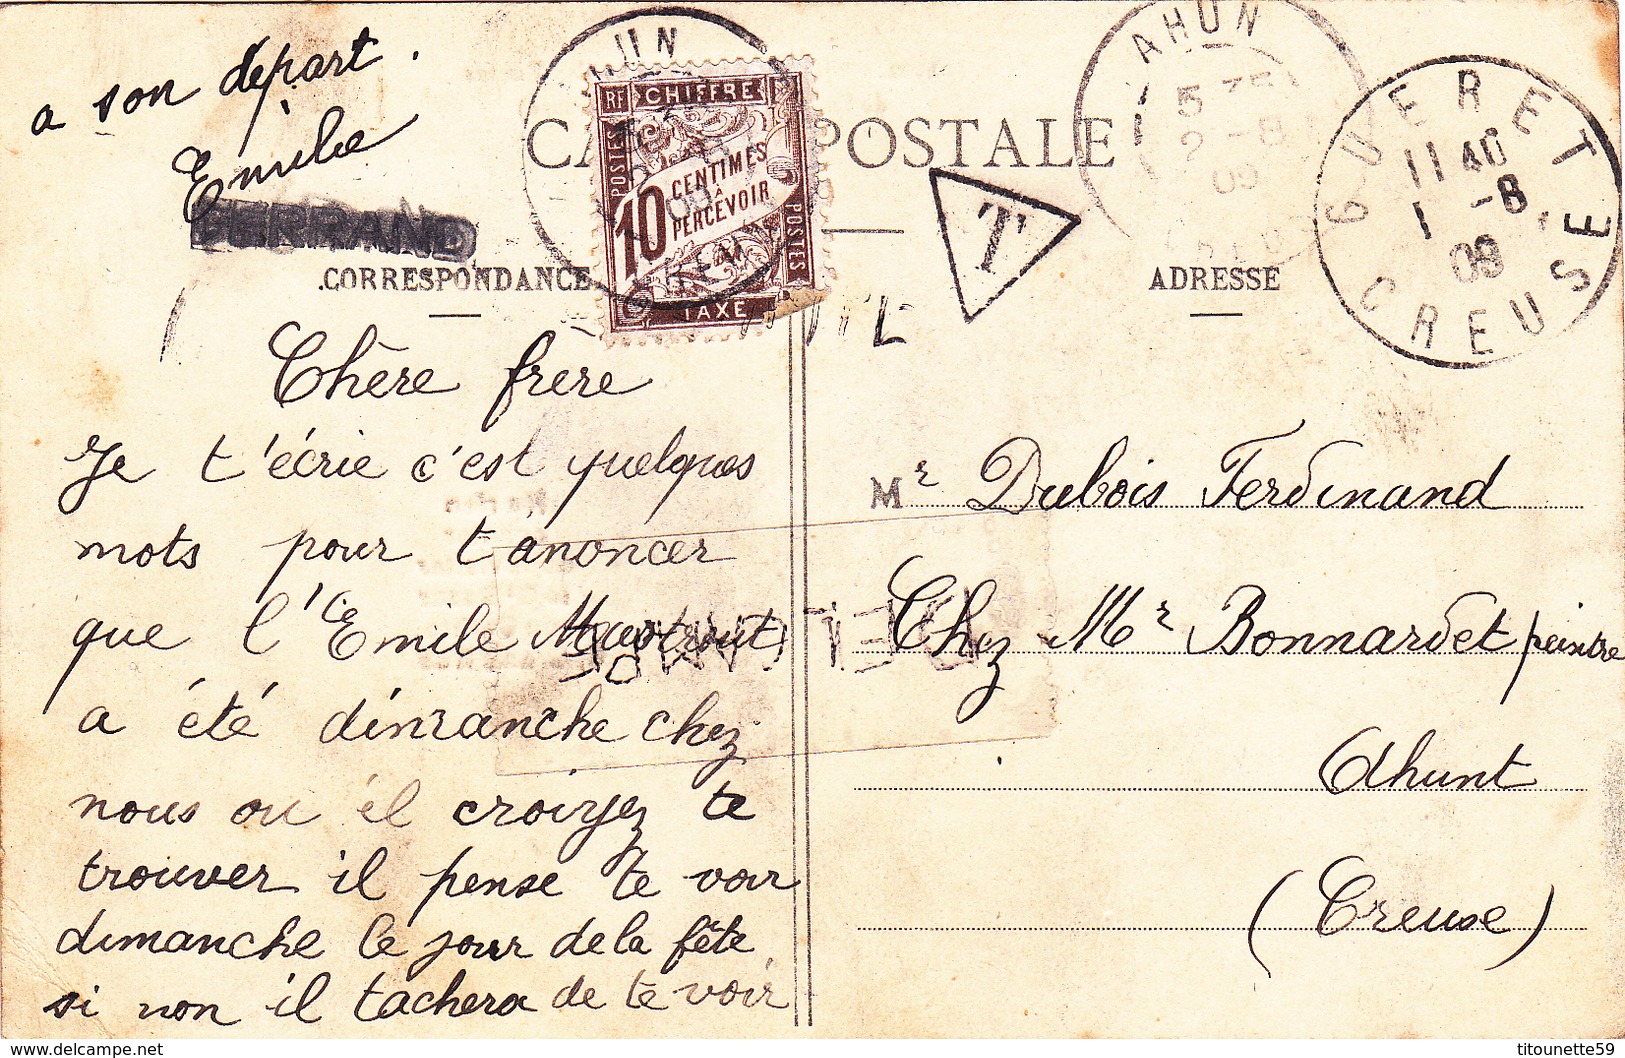 a son départ.
Emilie
FERRAND
CARTE POSTALE
RF CHIFFRE
POSTES
10 CENTIMES
À
PERCEVOIR
POSTES
TAXE
T
AHUN
5 35
2 -8
09
GUERET
11 40
1 -8
09
CREUSE
CORRESPONDANCE
ADRESSE
Chère frère
Je t'écrie c'est quelques
mots pour t'anoncer
que l'Emile
a été dimanche chez
nous ou il croiyez te
trouver il pense te voir
dimanche le jour de la fête
si non il tachera de te voir
Mr Dubois Ferdinand
Chez Mr Bonnardet peintre
Ahunt
(Creuse)
Delcampe.net
titounette59